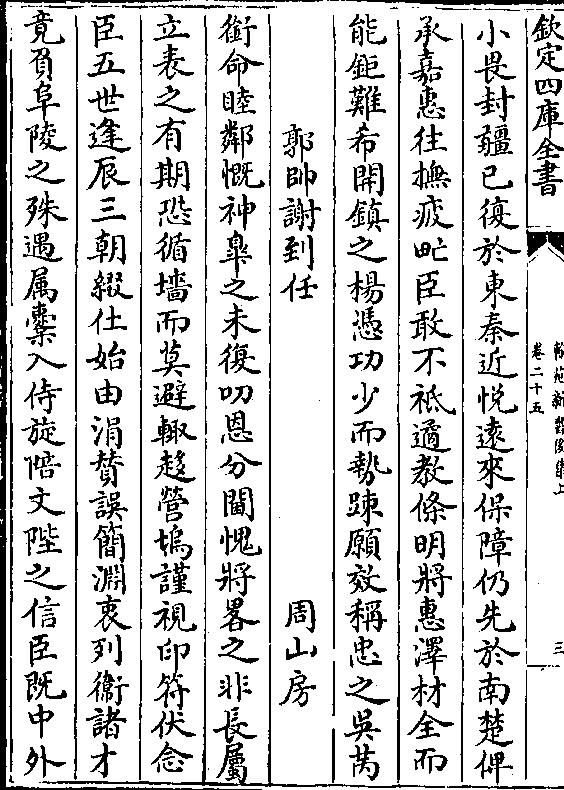 欽定四庫全書
翰苑新書後集上
卷二十五
三
小畏封疆已復於東秦近悅遠來保障仍先於南楚俾
承嘉惠往撫疲甿臣敢不祇遹教條明將惠澤材全而
能鉅難希開鎮之楊憑功少而勢踈願效稱忠之吳芮
郭帥謝到任 周山房
銜命睦鄰慨神臯之未復叨恩分閫愧將畧之非長屬
立表之有期恐循墻而莫避輙趍營塢謹視印符伏念
臣五世逢辰三朝綴仕始由涓賛誤簡淵衷列衞諸才
竟負阜陵之殊遇属櫜入侍旋陪文陛之信臣既中外